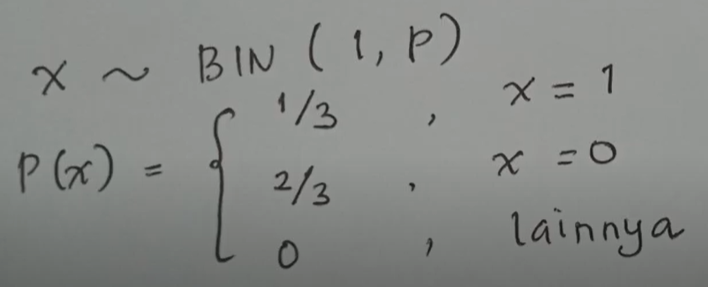 x ~ BIN ( 1, P)
P(x) = { 1/3 , x = 1
2/3 , x = 0
0 , lainnya